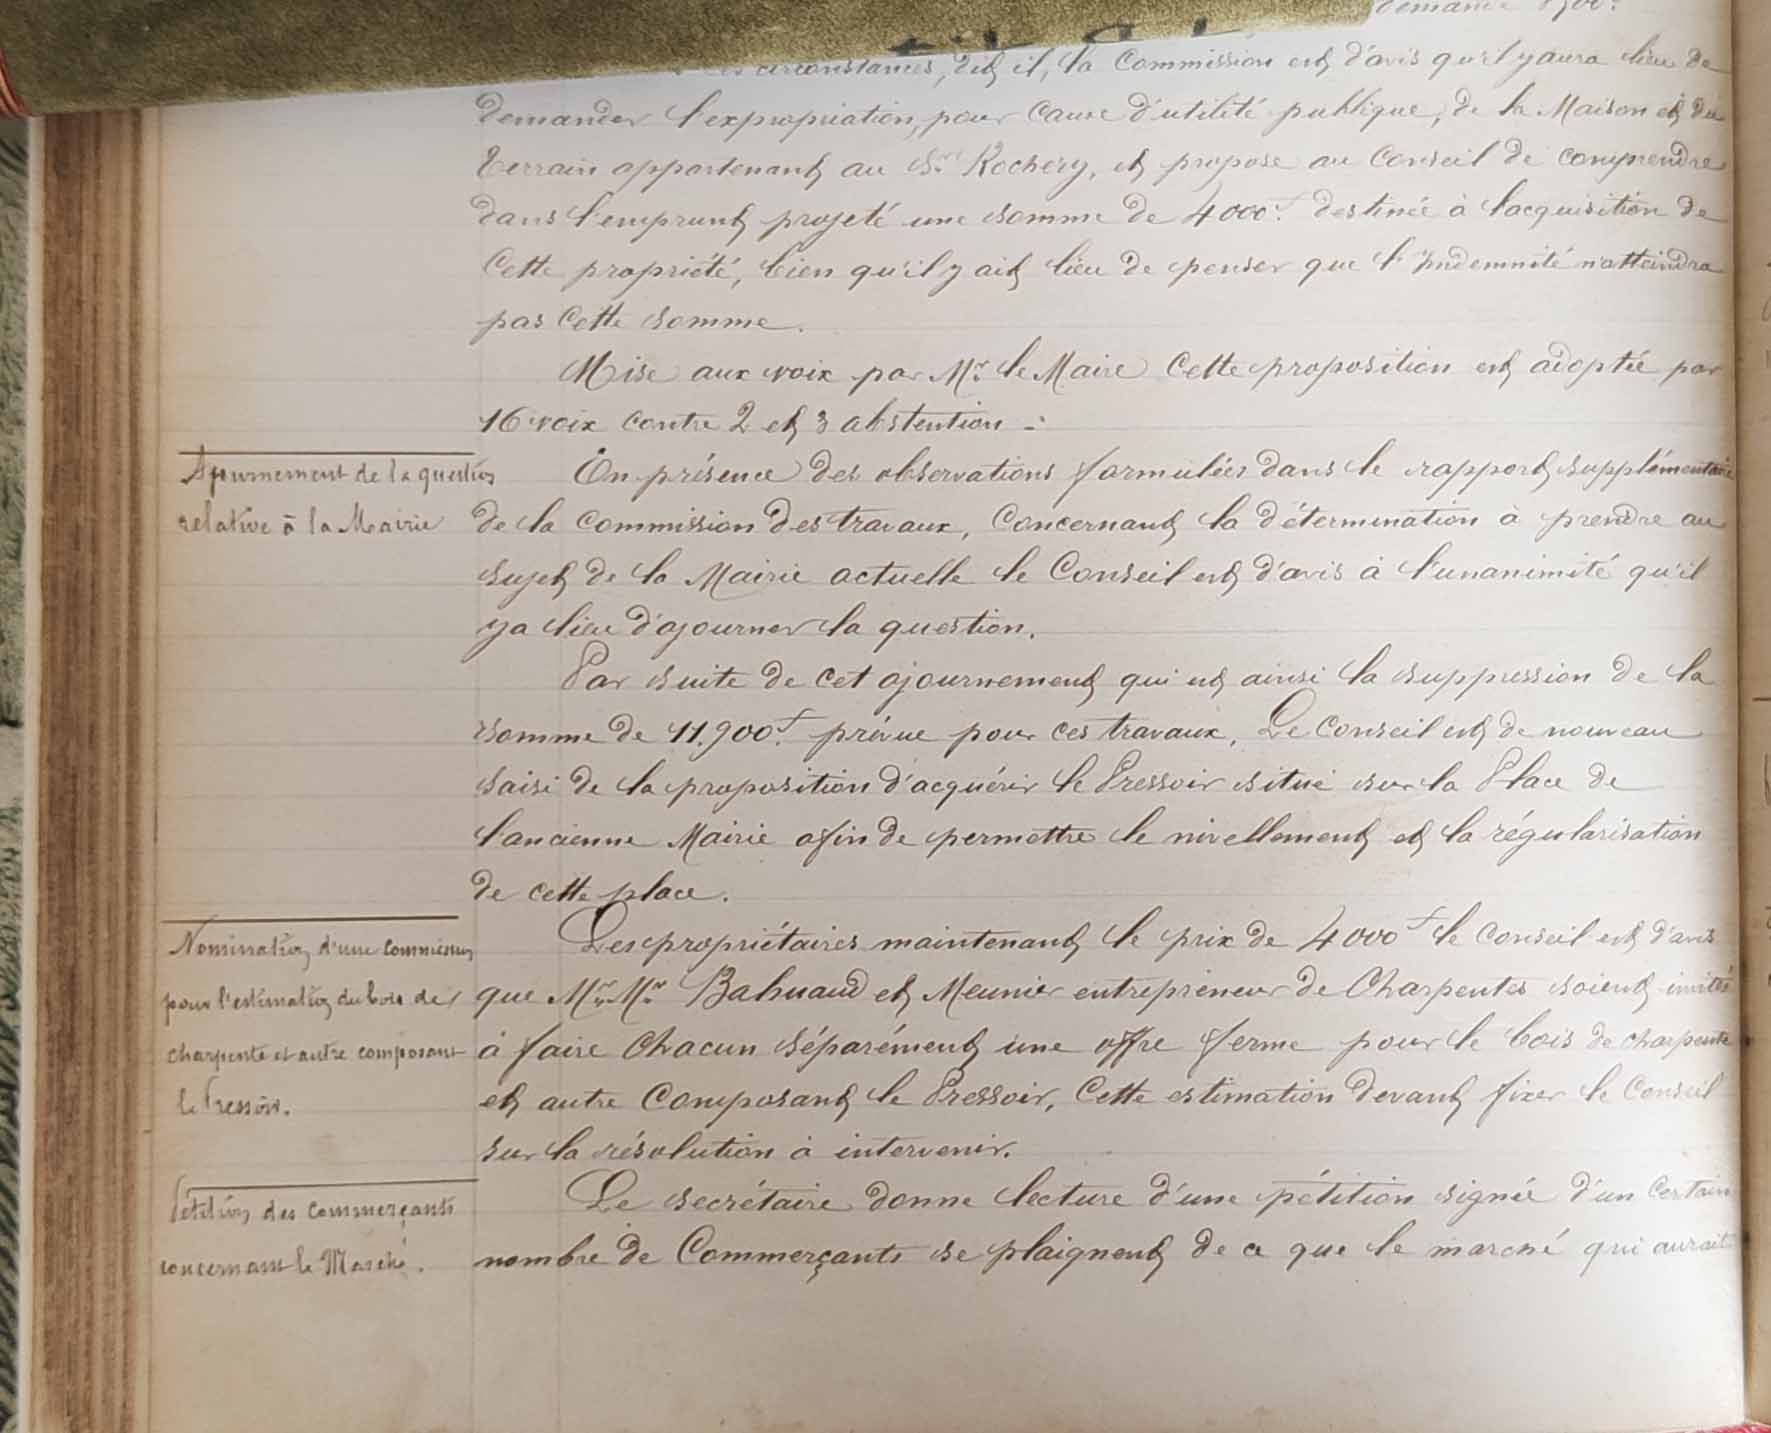 demande
circonstances, dit il, la Commission est d'avis qu'il y aura lieu de
demander l'expropriation, pour cause d'utilité publique, de la Maison et du
terrain appartenant au Sr. Rochery, et propose au Conseil de comprendre
dans l'emprunt projeté une somme de 4000f. destinée à l'acquisition de
Cette propriété, bien qu'il y ait lieu de penser que l'Indemnité n'atteindra
pas Cette somme.
Mise aux voix par Mr. le Maire Cette proposition est adoptée par
16 voix contre 2 et 3 abstention.
Ajournement de la question
relative à la Mairie
En présence des observations formulées dans le rapport supplémentaire
de la Commission des travaux, Concernant la détermination à prendre au
sujet de la Mairie actuelle le Conseil est d'avis à l'unanimité qu'il
y a lieu d'ajourner la question.
Par suite de cet ajournement qui est ainsi la suppression de la
somme de 11.900f. prévue pour ces travaux, Le Conseil est de nouveau
saisi de la proposition d'acquérir le Pressoir situé sur la Place de
l'ancienne Mairie afin de permettre le nivellement et la régularisation
de cette place.
Nomination d'une Commission
pour l'estimation du bois de
charpente et autre composant
le Pressoir.
Les propriétaires maintenant le prix de 4000f le Conseil est d'avis
que Mr. Mr. Bahuaud et Meunier entrepreneur de Charpentes soient invités
à faire Chacun séparément une offre ferme pour le bois de charpente
et autre Composant le Pressoir, Cette estimation devant fixer le Conseil
sur la résolution à intervenir.
Pétition des Commerçants
concernant le Marché.
Le secrétaire donne lecture d'une pétition signée d'un Certain
nombre de Commerçants se plaignent de ce que le marché qui aurait